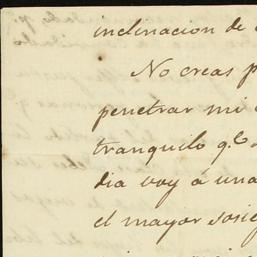 inclinacion de
No creas p
penetrar mi
tranquilo q.e
dia voy á una
el mayor sosie